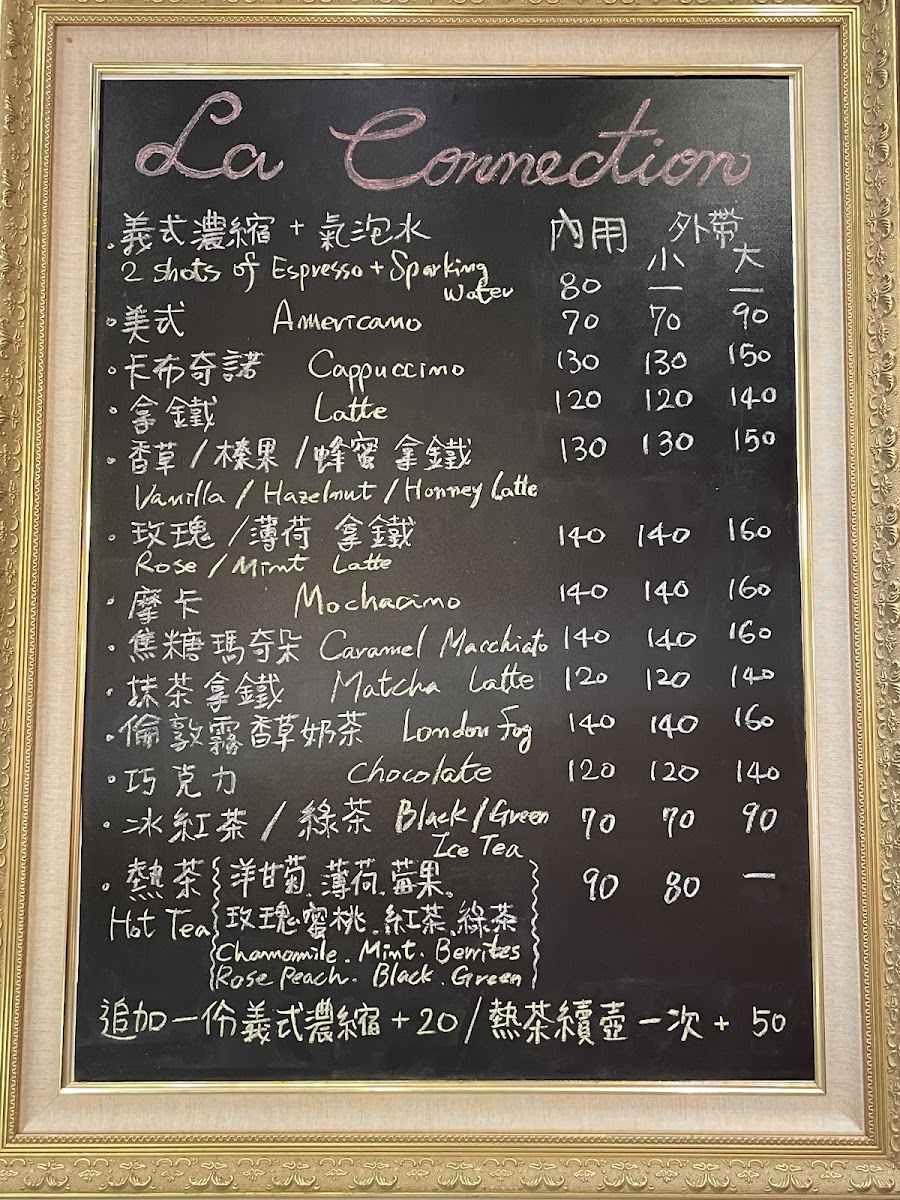 La Connection
內用 外帶
小 大
義式濃縮 + 氣泡水
2 shots of Espresso + Sparking
Water 80 — —
美式 Americano 70 70 90
卡布奇諾 Cappuccino 130 130 150
拿鐵 Latte 120 120 140
香草 / 榛果 / 蜂蜜 拿鐵 130 130 150
Vanilla / Hazelnut / Honney Latte
玫瑰 / 薄荷 拿鐵 140 140 160
Rose / Mint Latte
摩卡 Mochacino 140 140 160
焦糖瑪奇朵 Caramel Macchiato 140 140 160
抹茶拿鐵 Matcha Latte 120 120 140
倫敦霧香草奶茶 London Fog 140 140 160
巧克力 Chocolate 120 120 140
冰紅茶 / 綠茶 Black / Green 70 70 90
Ice Tea
熱茶 洋甘菊、薄荷、莓果、 90 80 —
Hot Tea 玫瑰蜜桃、紅茶、綠茶
Chamomile. Mint. Berrites
Rose Peach. Black. Green
追加一份義式濃縮 + 20 / 熱茶續壺一次 + 50